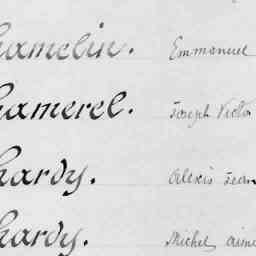 hamelin. Emmanuel
hamerel. Joseph Victo
hardy. Alexis Jean
hardy. Michel aimé